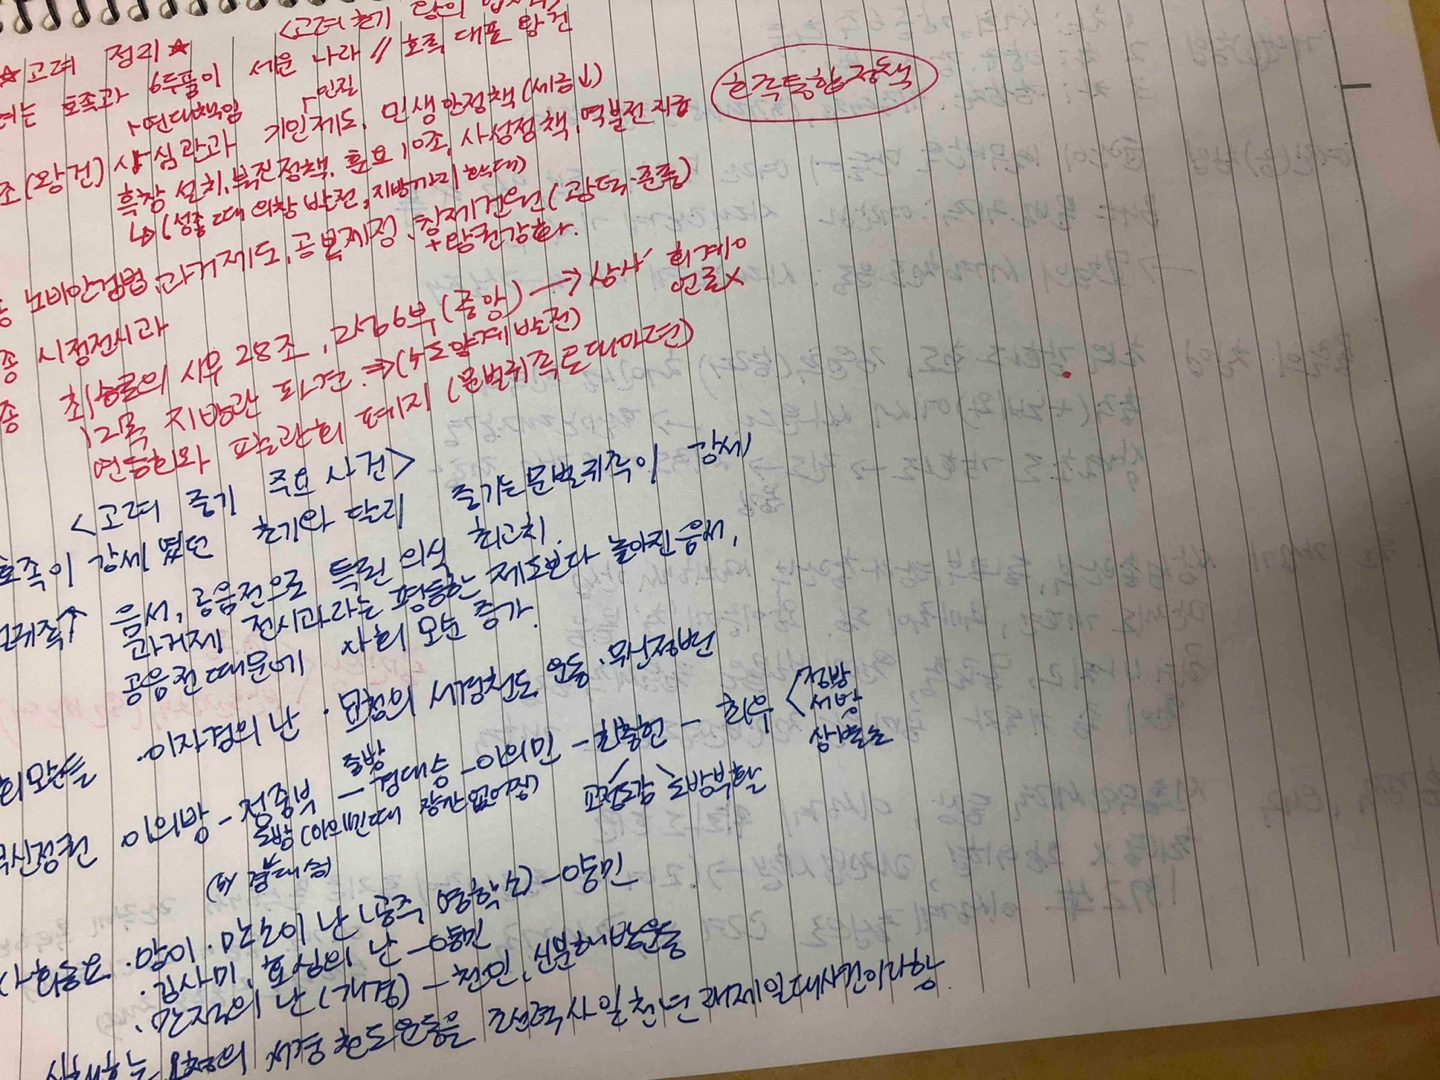 <고려 초기 왕의 업적>
☆고려 정리☆
호족과 6두품이 세운 나라 // 호족 대표 왕건
↳연대책임 ↱인질
(왕건) 사심관과 기인제도, 민생안정책(세금↓) 호족통합정책
흑창 설치, 북진정책, 훈요 10조, 사성정책, 역분전 지급
↳(성종 때 의창 발전, 지방까지 확대)
노비안검법, 과거제도, 공복제정, 칭제건원(광덕·준풍)
+왕권강화.
종 시정전시과
종 최승로의 시무 28조, 2성6부(중앙) → 삼사 회계o
언론x
12목 지방관 파견 ⇒ (5도양계 발전)
연등회와 팔관회 폐지 (문벌귀족 토대마련)
<고려 중기 주요 사건>
호족이 강세였던 초기와 달리 중기는 문벌귀족이 강세
음서, 공음전으로 특권 의식 최고치.
과거제 전시과라는 평등한 제도보다 높아진 음서,
공음전 때문에 사회 모순 증가.
·이자겸의 난 · 묘청의 서경천도 운동 · 무신정변
중방 정방
무신정권 이의방 - 정중부 - 경대승 - 이의민 - 최충헌 - 최우 < 서방
도방(이의민 때 잠깐 없어짐) 교정도감 도방부활 삼별초
(by 경대승)
·망이·망소이 난 (공주 명학소) - 양민
·김사미, 효심의 난 - 양민
·만적의 난 (개경) - 천민, 신분해방운동
신채호는 묘청의 서경 천도 운동을 조선역사 일천년래제일대사건이라 함.